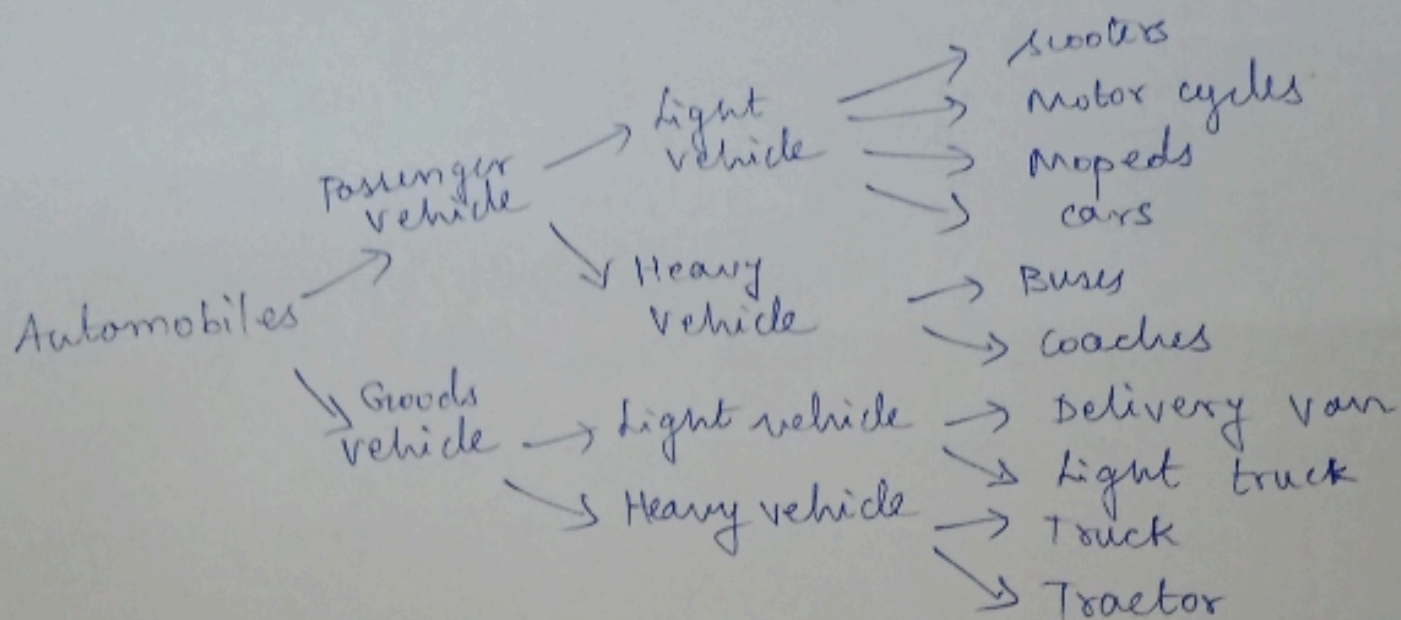 Automobiles
Passenger
vehicle
Light
vehicle
scooters
Motor cycles
Mopeds
cars
Heavy
Vehicle
Buses
coaches
Goods
vehicle
Light vehicle
Delivery van
Light truck
Heavy vehicle
Truck
Tractor